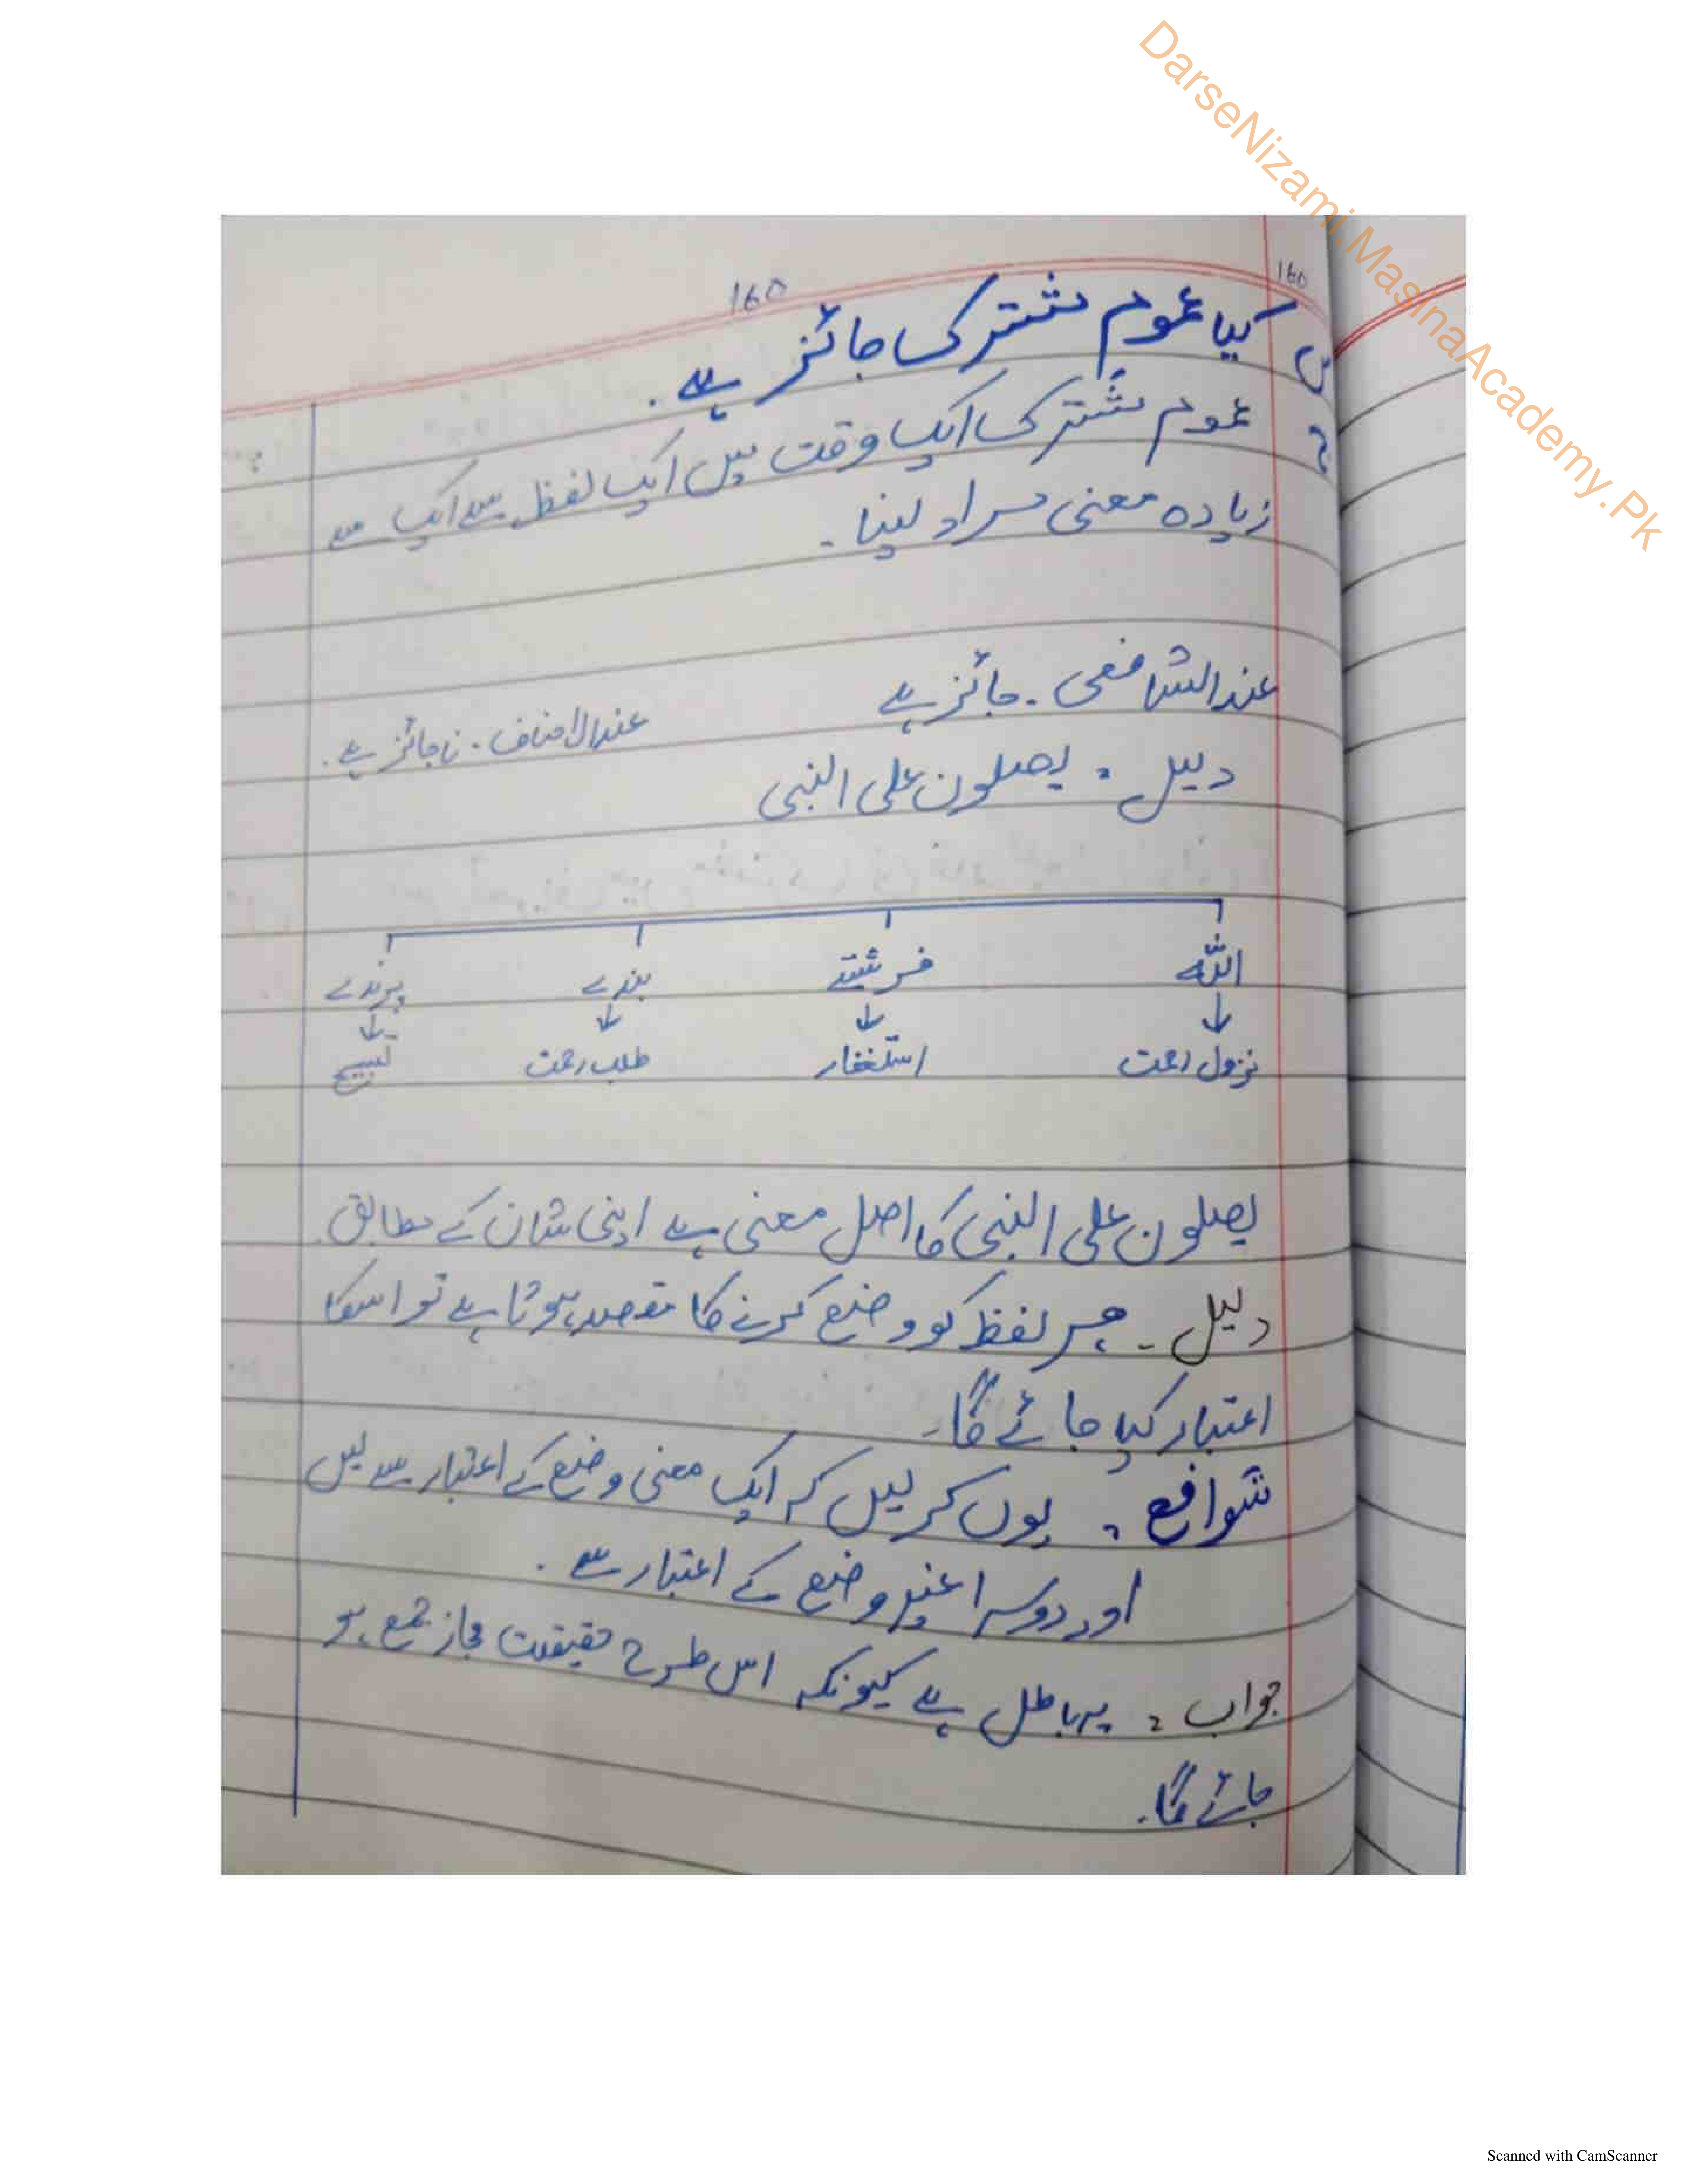 DarseNizami.MasinaAcademy.Pk
160
160
س کیا عموم مشترک جائز ہے۔
ج عموم مشترک ایک وقت میں ایک لفظ سے ایک سے
زیادہ معنی مراد لینا۔
عند الشافعی ۔ جائز ہے
عند الاحناف ۔ ناجائز ہے۔
دلیل ۔ یصلون علی النبی
اللہ فرشتے بندے پرندے
↓ ↓ ↓ ↓
نزول رحمت استغفار طلب رحمت تسبیح
یصلون علی النبی کا اصل معنی ہے اپنی شان کے مطابق
دلیل ۔ جس لفظ کو وضع کرنے کا مقصد ہوتا ہے تو اسکا
اعتبار کیا جائے گا۔
شوافع ۔ یوں کر لیں کہ ایک معنی وضع کے اعتبار سے لیں
اور دوسرا غیر وضع کے اعتبار سے ۔
جواب ۔ یہ باطل ہے کیونکہ اس طرح حقیقت مجاز جمع ہو
جائے گا۔
Scanned with CamScanner